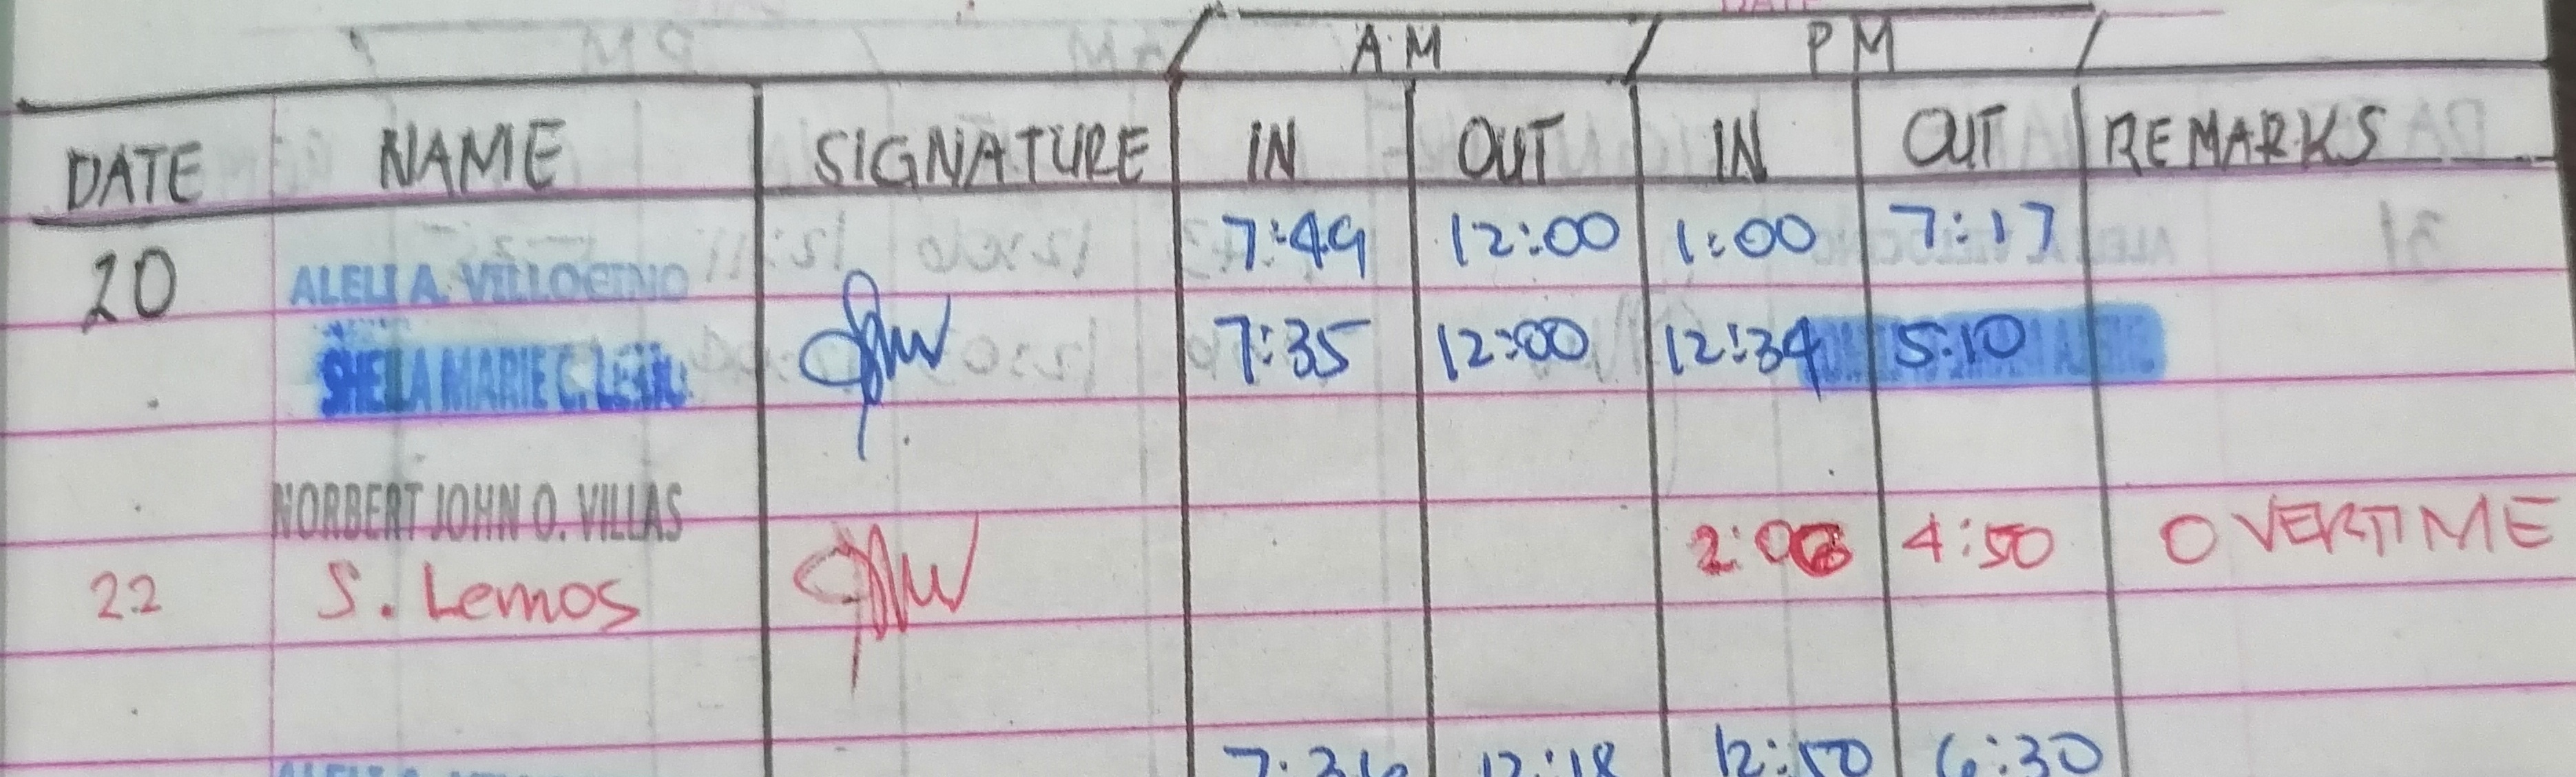 AM PM
DATE NAME SIGNATURE IN OUT IN OUT REMARKS
20 ALELI A. VILLOGINO 7:49 12:00 1:00 7:17
SHEILA MARIE C. 7:35 12:00 12:34 5:10
NORBERT JOHN O. VILLAS
22 S. Lemos 2:00 4:50 OVERTIME
7:36 12:18 12:50 6:30